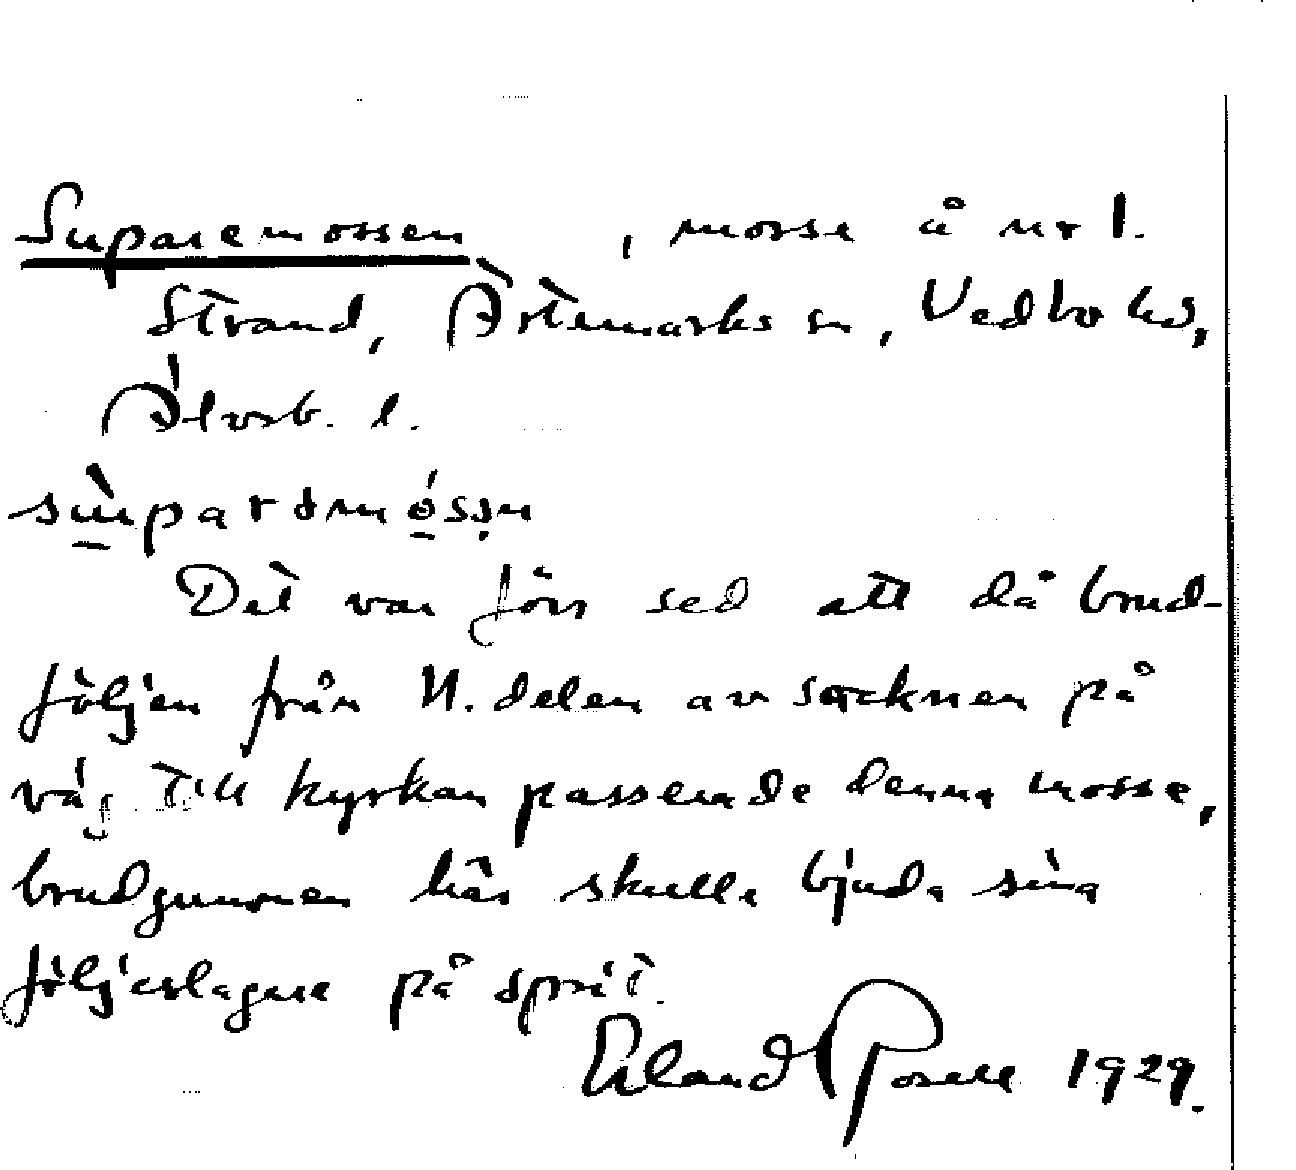 Suparemossen, mosse å nr 1.
Strand, Ärtemarks sn, Vedbo hd,
Älvsb. l.
sùparəmósșn
Det var förr sed att då brud-
följen från N. delen av socknen på
väg till kyrkan passerade denna mosse,
brudgummen här skulle bjuda sina
följeslagare på sprit.
Erland Rosell 1929.